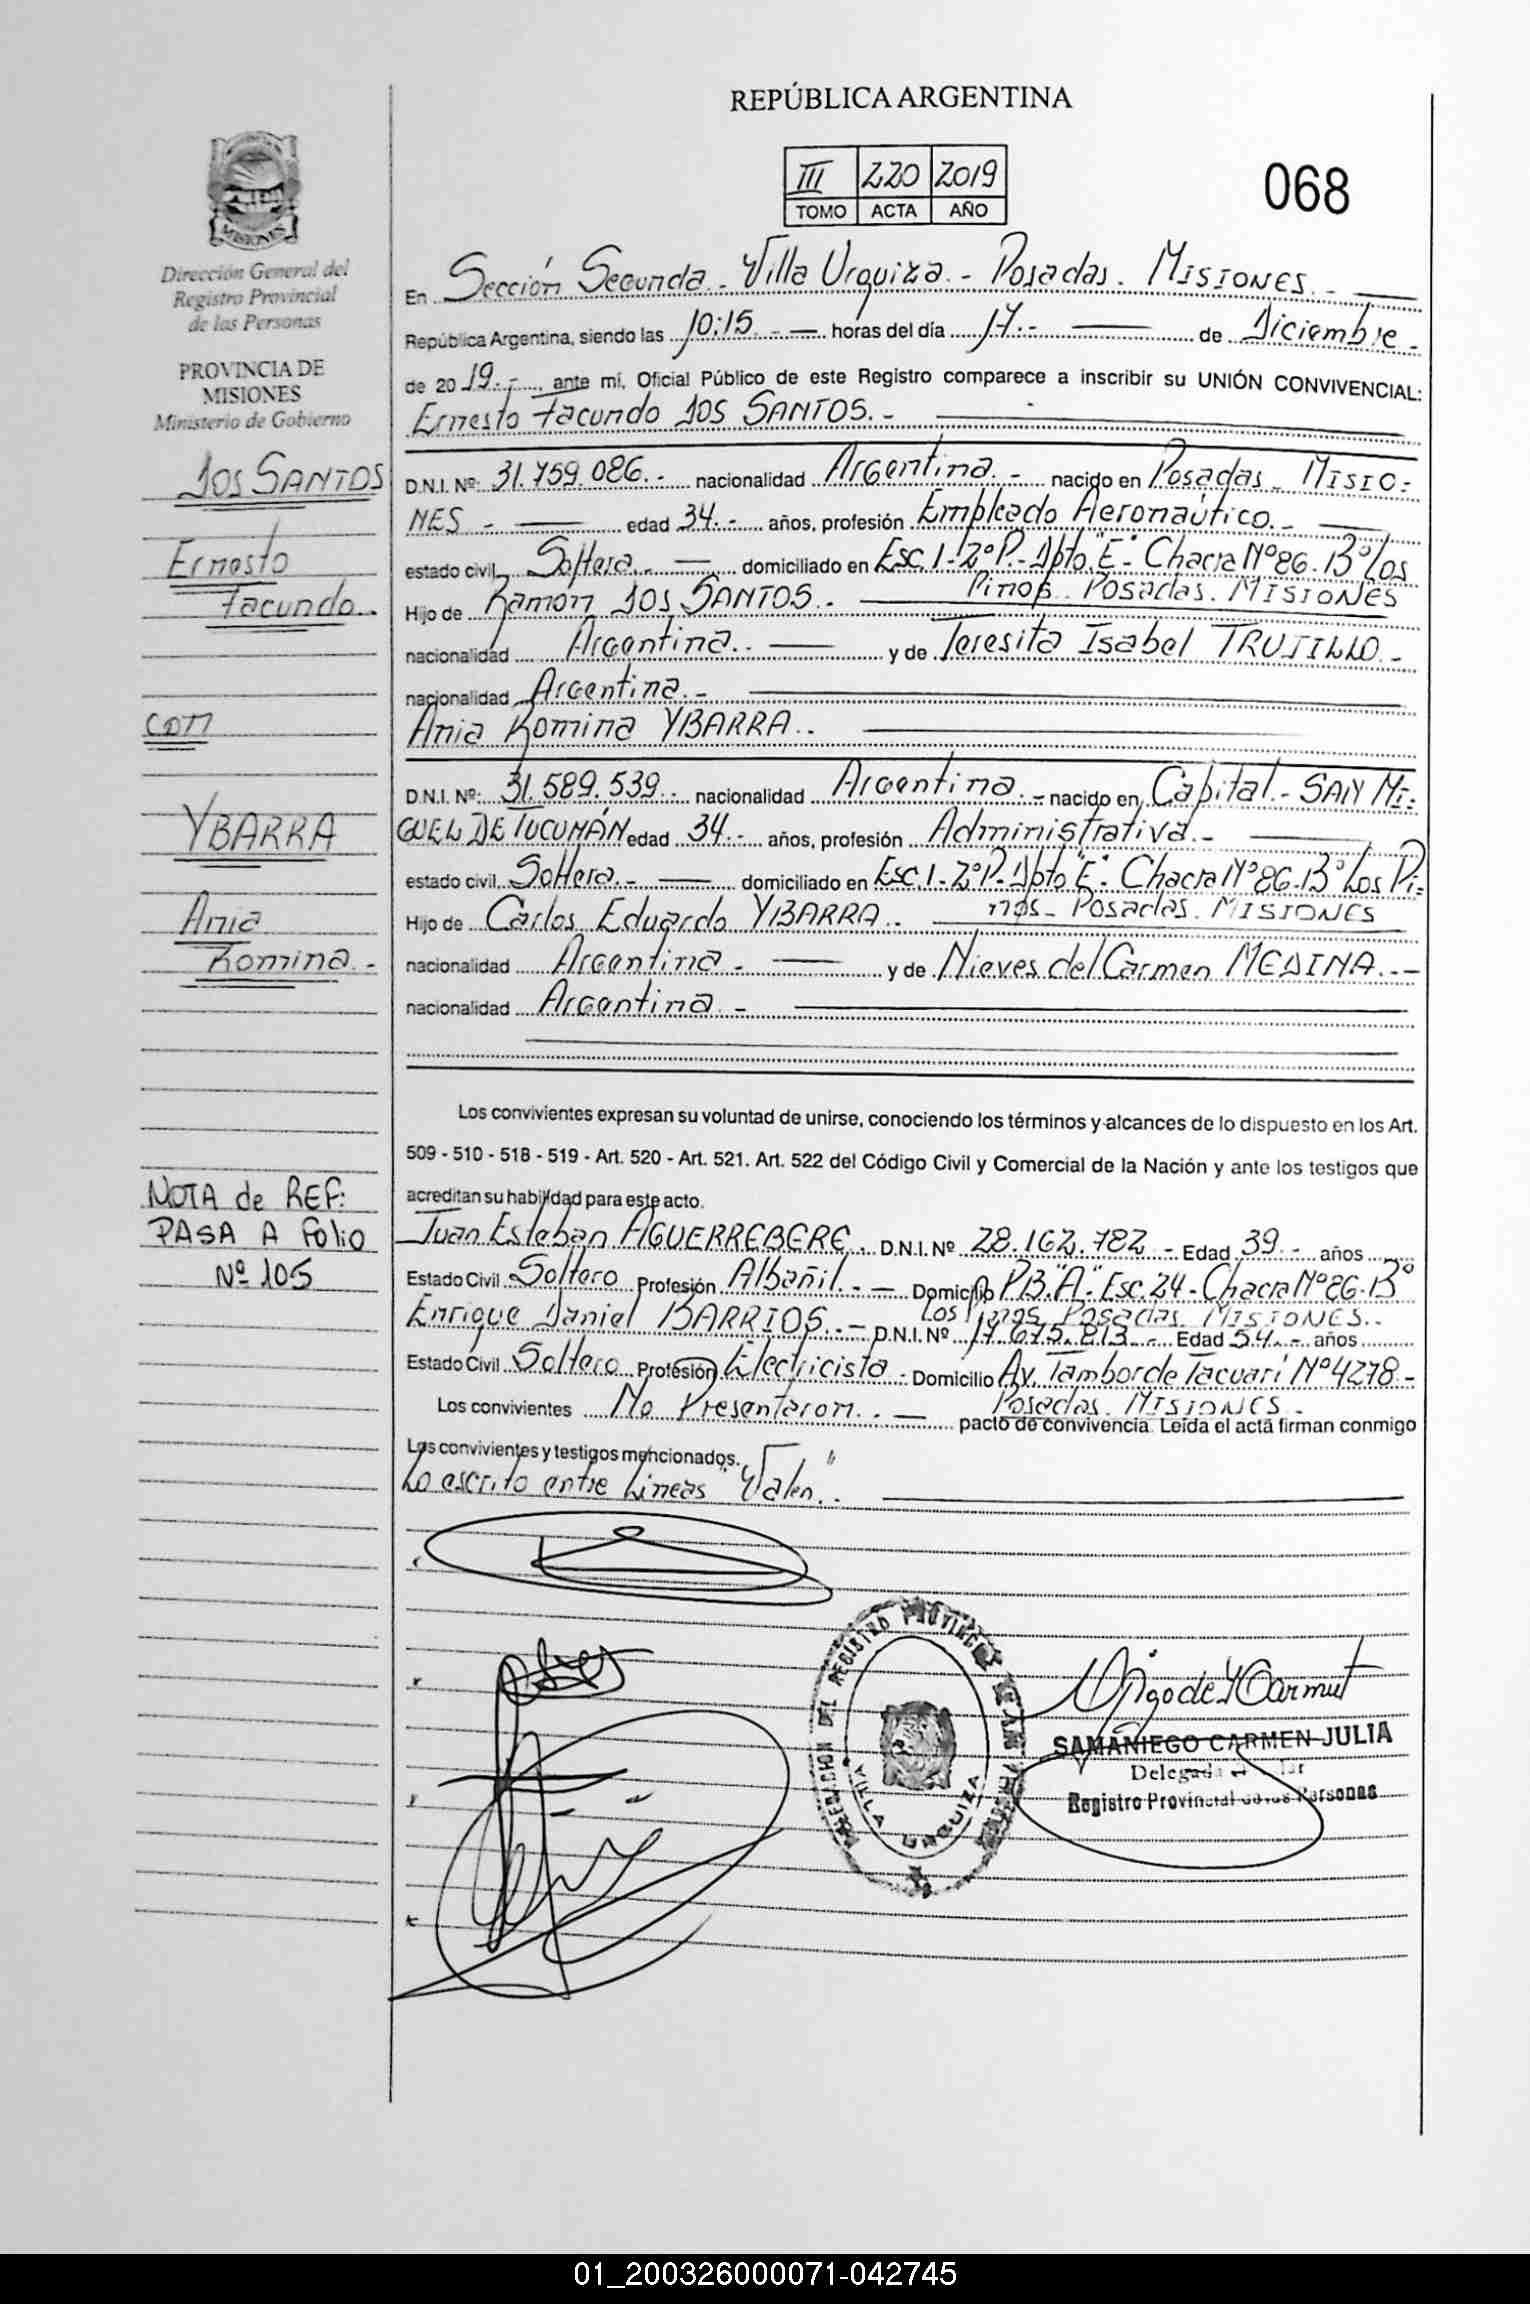 REPÚBLICA ARGENTINA
III 220 2019
TOMO ACTA AÑO
068
MISIONES
Dirección General del
Registro Provincial
de las Personas
PROVINCIA DE
MISIONES
Ministerio de Gobierno
DOS SANTOS
Ernesto
Facundo.
con
YBARRA
Ania
Romina.-
NOTA de REF:
PASA A Folio
Nº 105
En Sección Segunda.- Villa Urquiza.- Posadas. MISIONES.-
República Argentina, siendo las 10:15.- horas del día 17.- de Diciembre-
de 2019.- ante mí, Oficial Público de este Registro comparece a inscribir su UNIÓN CONVIVENCIAL:
Ernesto Facundo DOS SANTOS.-
D.N.I. Nº: 31.759.086.- nacionalidad Argentina.- nacido en Posadas- MISIO-
NES - edad 34.- años, profesión Empleado Aeronáutico.-
estado civil Soltera.- domiciliado en Esc.1-2ºP.-Dpto."E"- Chacra Nº86.-Bº Los
Pinos. Posadas. MISIONES
Hijo de Ramón DOS SANTOS.-
nacionalidad Argentina.- y de Teresita Isabel TRUJILLO.-
nacionalidad Argentina.-
Ania Romina YBARRA.-
D.N.I. Nº: 31.589.539.- nacionalidad Argentina.- nacido en Capital.- SAN MI-
GUEL DE TUCUMÁN edad 34.- años, profesión Administrativa.-
estado civil Soltera.- domiciliado en Esc.1-2ºP-Dpto"E"- Chacra Nº86.-Bº Los Pi-
nos- Posadas. MISIONES
Hijo de Carlos Eduardo YBARRA.-
nacionalidad Argentina- y de Nieves del Carmen MEDINA.-
nacionalidad Argentina.-
Los convivientes expresan su voluntad de unirse, conociendo los términos y alcances de lo dispuesto en los Art.
509 - 510 - 518 - 519 - Art. 520 - Art. 521. Art. 522 del Código Civil y Comercial de la Nación y ante los testigos que
acreditan su habilidad para este acto.
Juan Esteban AGUERREBERE. D.N.I. Nº 28.162.782 - Edad 39.- años
Estado Civil Soltero Profesión Albañil.- Domicilio PB."A" Esc.24-Chacra Nº86-Bº
Los Pinos. Posadas. MISIONES.-
Enrique Daniel BARRIOS.- D.N.I. Nº 17.675.813.- Edad 54.- años
Estado Civil Soltero Profesión Electricista- Domicilio Av. Tambor de Tacuarí Nº4278-
Posadas. MISIONES.-
Los convivientes No Presentaron.- pacto de convivencia. Leída el acta firman conmigo
Los convivientes y testigos mencionados.
Lo escrito entre Lineas "Valen".-
VILLA URQUIZA
SAMANIEGO CARMEN JULIA
Registro Provincial de las Personas
01_200326000071-042745